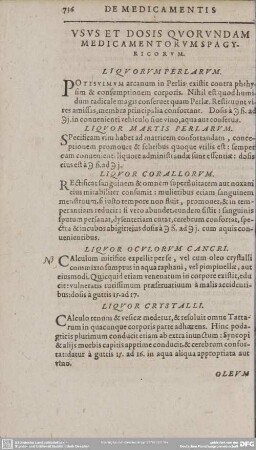 736 DE MEDICAMENTIS
VSVS ET DOSIS QVORVNDAM
MEDICAMENTORVM SPAGY-
RICORVM.
LIQVORVM PERLARVM.
POtissimum arcanum in Perlis existit contra phthy-
sim & consumptionem corporis. Nihil est quod humi-
dum radicale magis conseruet quam Perlæ. Restituunt vi-
res amissas, membra principalia confortant. Dosis à
in conuenienti vehiculo siue vino, aqua aut conserua.
LIQVOR MARTIS PERLARVM.
SPecificam vim habet ad matricem confortandam, conce-
ptionem promouet & febribus quoque vtilis est: semper
eam conuenienti liquore administranda sunt essentiæ: dosis
eius est à
LIQVOR CORALLORVM.
REctificat sanguinem & omnem superfluitatem aut noxam
eius mirabiliter consumit: mulieribus etiam sanguinem
menstruum, si iusto tempore non fluit, promouet, & in tem-
peramentum reducit: si vero abunde
putum personat, Dysenteriam curat, cerebrum confortat, spe-
ctra & incubos abigit: eius dosis à aquis con-
uenientibus.
LIQVOR OCVLORVM CANCRI.
CAlculum mirifice expellit per se, vel cum oleo crystalli
commixto sumptus in aqua raphani, vel pimpinellæ, aut
eiusmodi. Quicquid etiam venenatum in corpore existit, edu-
cit: vulneratis tutissimum præseruatiuum à malis accidenti-
bus: dosis à guttis 15. ad 17.
LIQVOR CRYSTALLI.
CAlculo renum & vesicæ medetur, & resoluit omne Tarta-
rum in quacunque corporis parte adhærens. Hinc poda-
gricis plurimum conducit etiam ab extra inunctum: Syncopi
& aliis morbis capitis apprime conducit, & cerebrum confor-
tat: datur à guttis 15. ad 16. in aqua aliqua appropriata aut
vino.
OLEVM